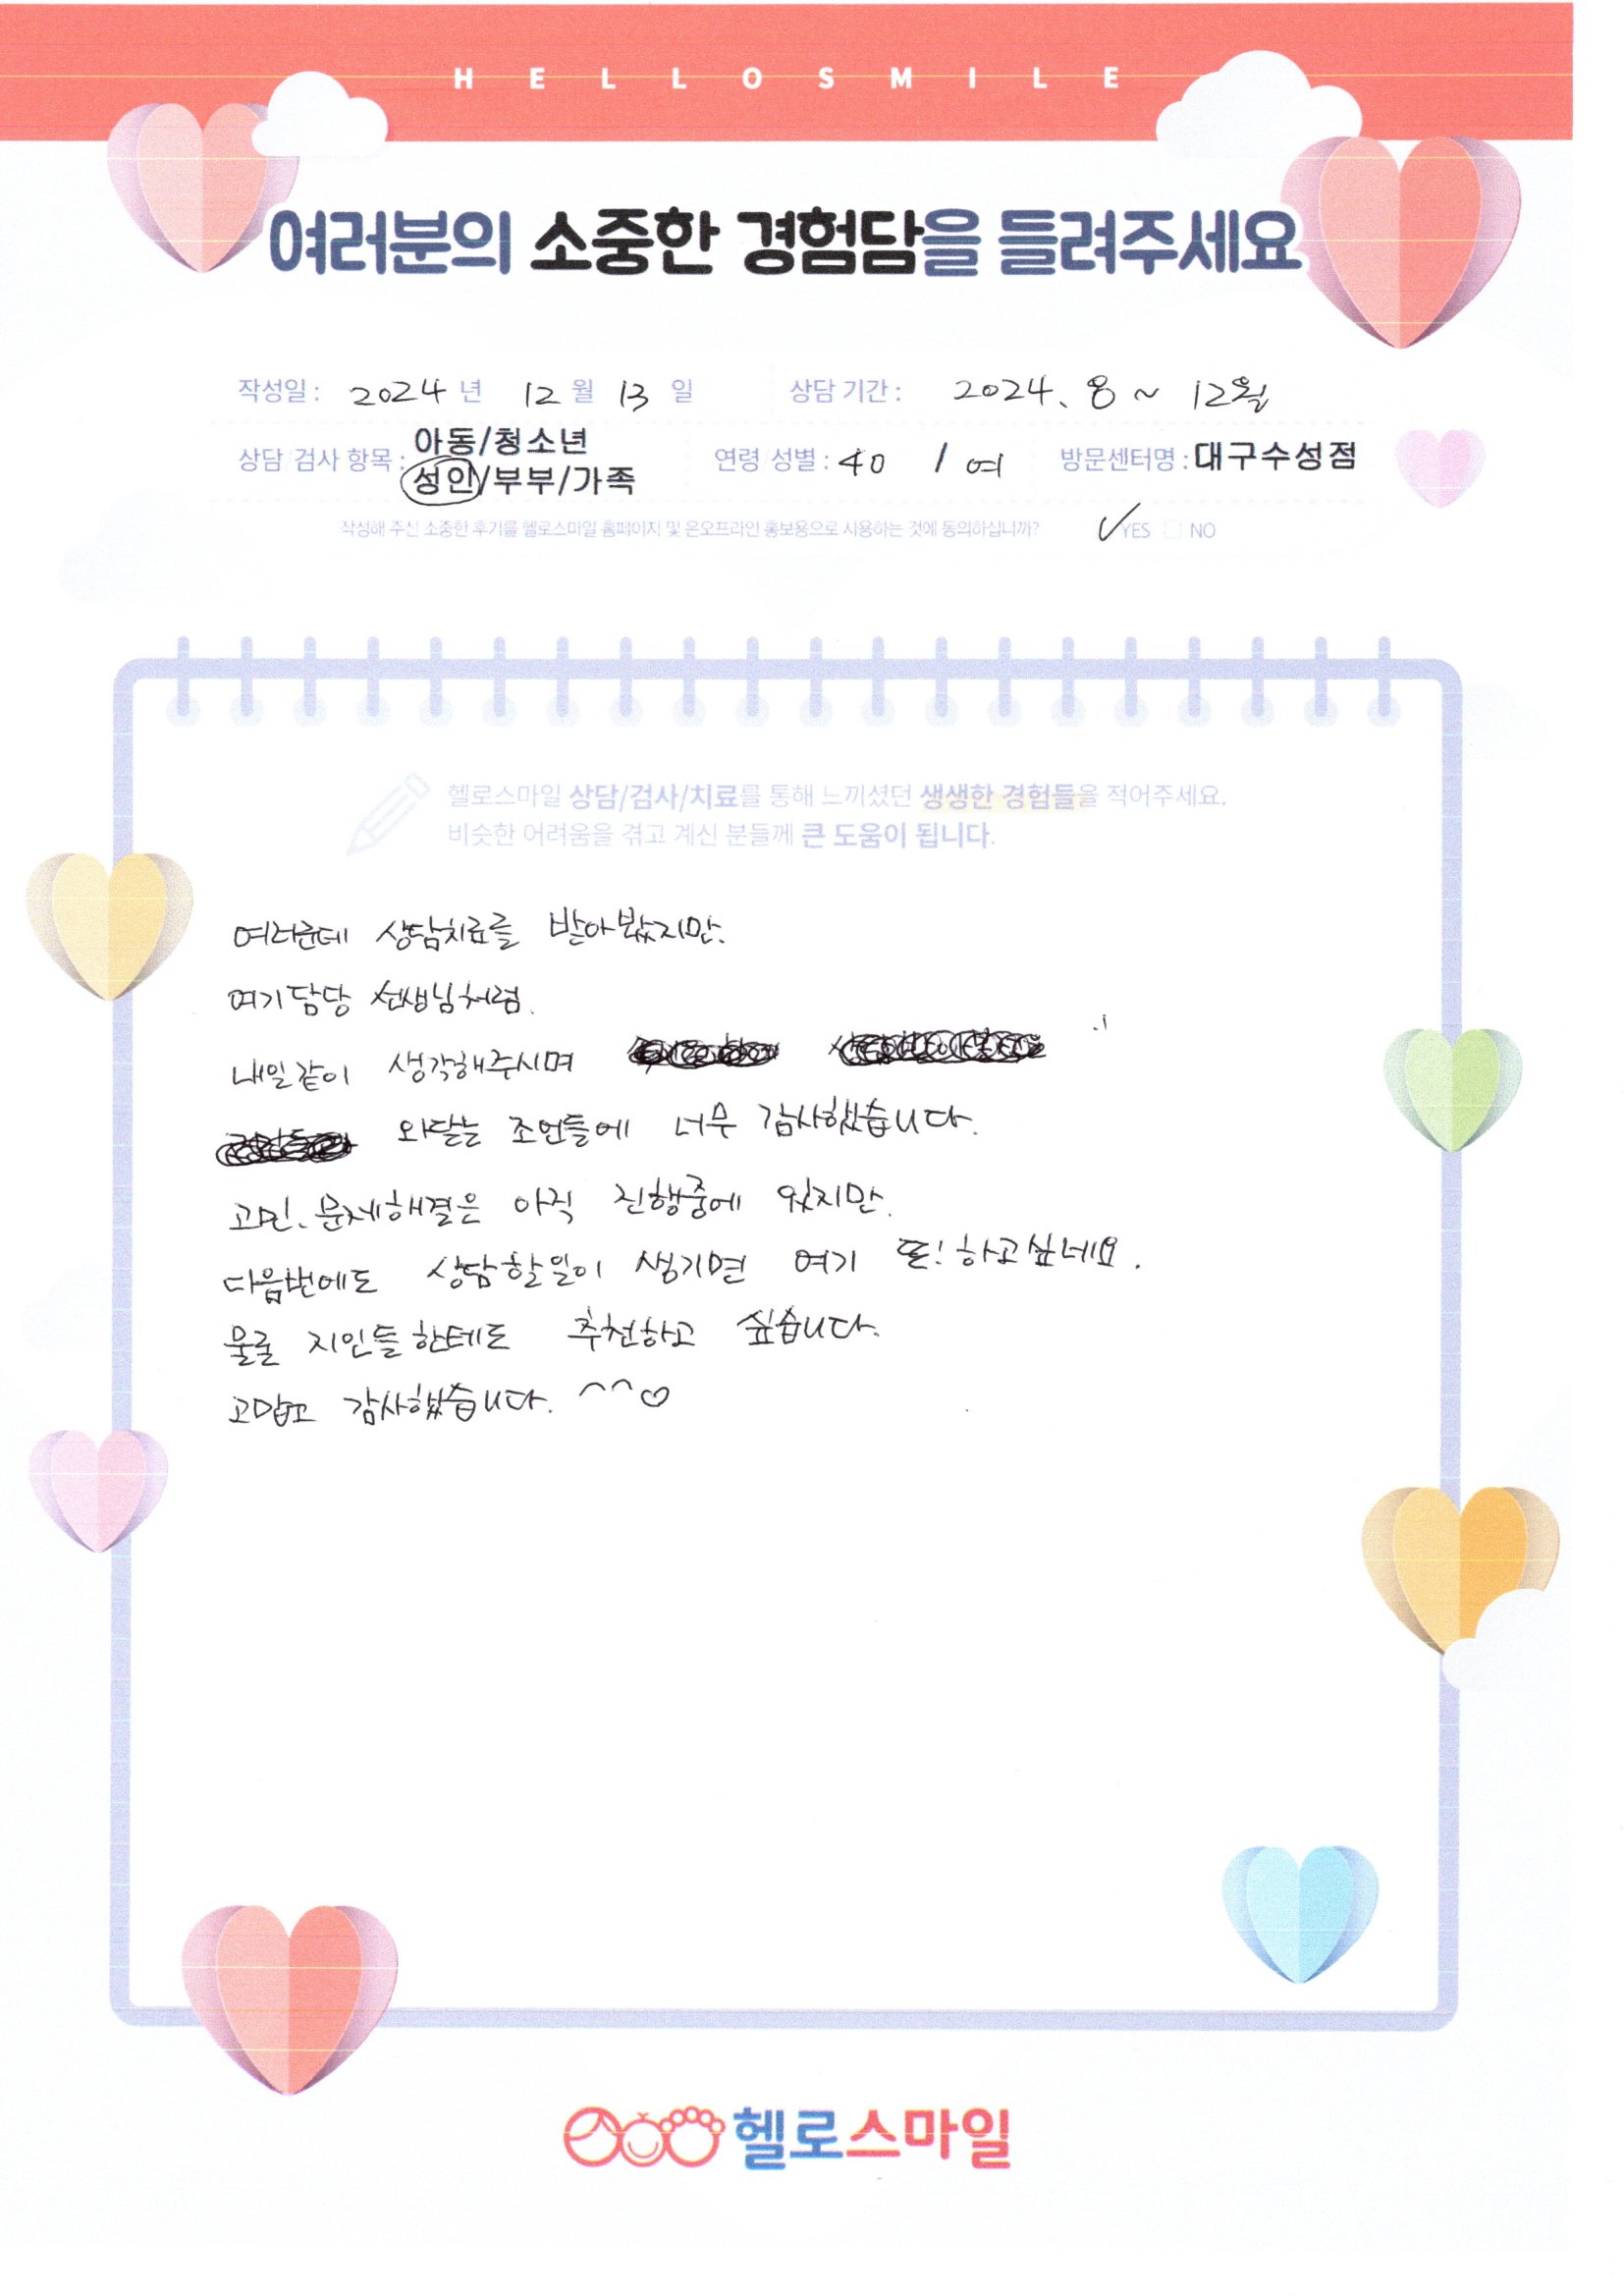 HELLOSMILE
여러분의 소중한 경험담을 들려주세요
작성일 : 2024 년 12 월 13 일 상담 기간 : 2024. 8 ~ 12월
상담 검사 항목 : 아동/청소년
성인/부부/가족
연령 성별 : 40 / 여 방문센터명 : 대구수성점
작성해 주신 소중한 후기를 헬로스마일 홈페이지 및 온오프라인 홍보용으로 사용하는 것에 동의하십니까? YES NO
헬로스마일 상담/검사/치료를 통해 느끼셨던 생생한 경험들을 적어주세요.
비슷한 어려움을 겪고 계신 분들께 큰 도움이 됩니다.
여러군데 상담치료를 받아봤지만.
여기담당 선생님처럼.
내일같이 생각해주시며
와닿는 조언들에 너무 감사했습니다.
고민. 문제해결은 아직 진행중에 있지만.
다음번에도 상담할일이 생기면 여기 또! 하고싶네요.
물론 지인들한테도 추천하고 싶습니다.
고맙고 감사했습니다. ^^♡
헬로스마일